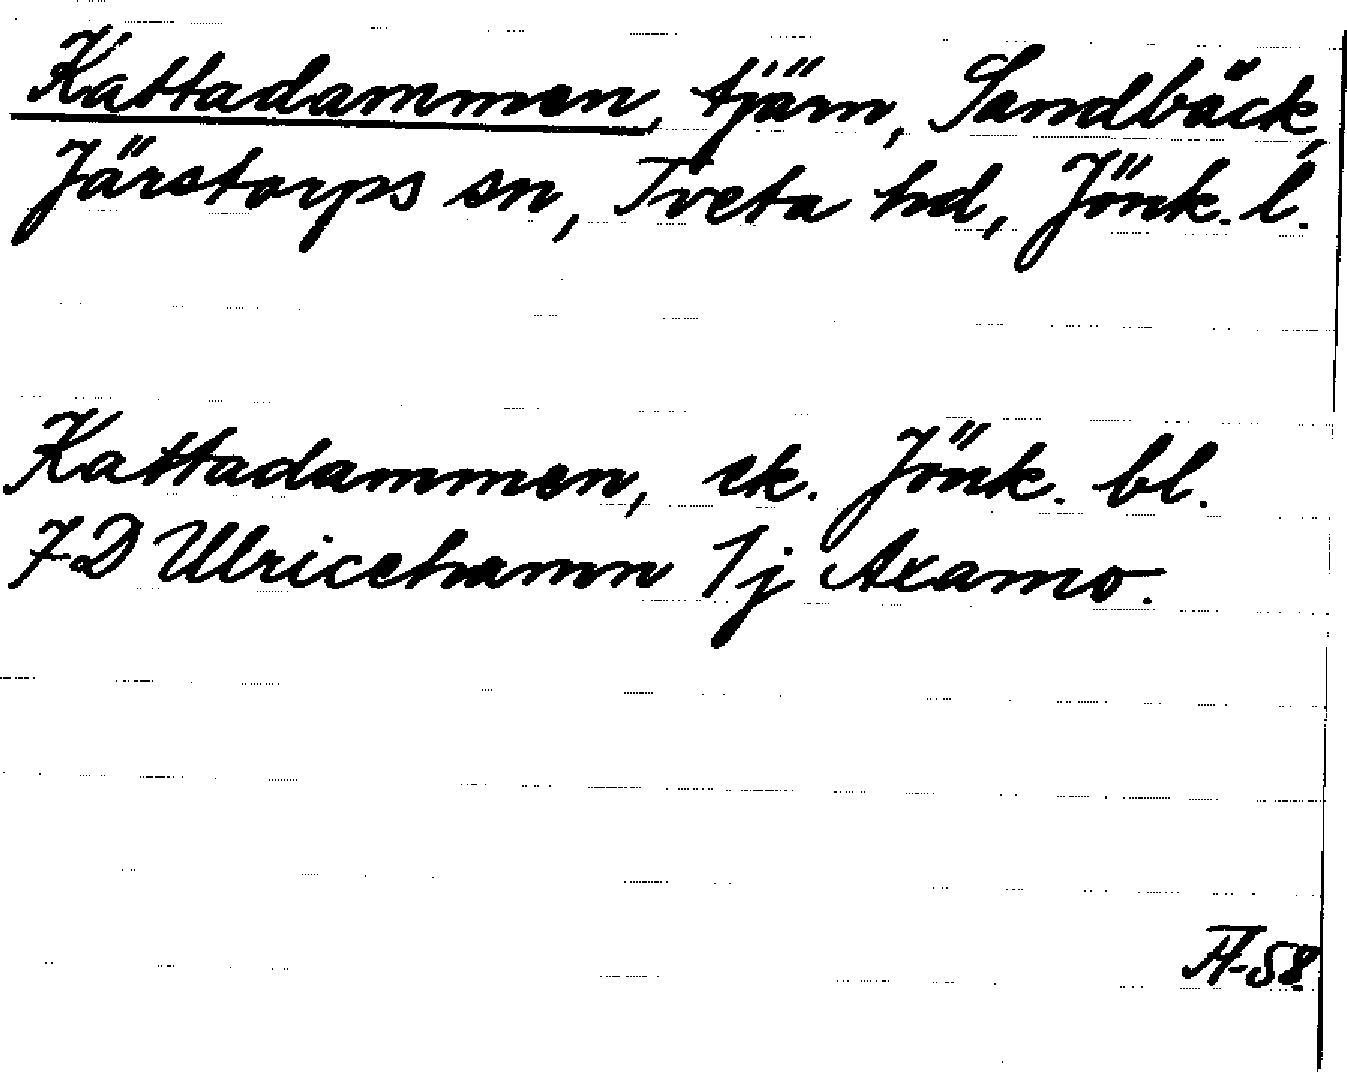 Kattadammen, tjärn, Sandbäck,
Järstorps sn, Tveta hd, Jönk. l.
Kattadammen, ek. Jönk. bl.
7D Ulricehamn 1j Axamo.